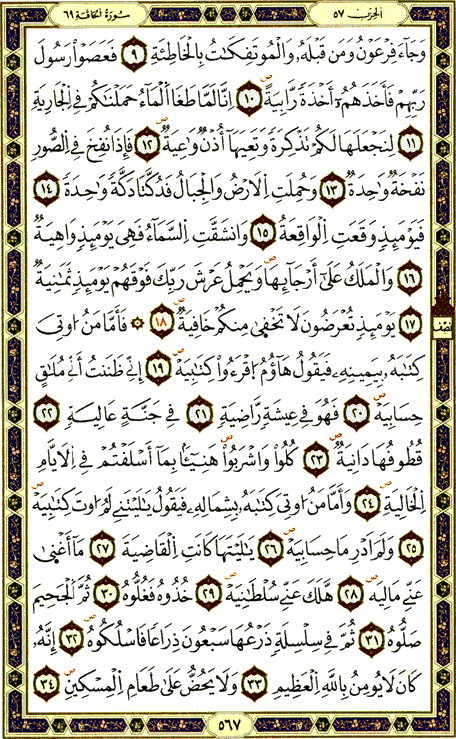 سُورَةُ الحَاقَّة ٦٩
الحِزب ٥٧
وَجَآءَ فِرْعَوْنُ وَمَن قِبَلَهُۥ وَالْمُوتَفِكَٰتُ بِالْخَاطِئَةِ ٩ فَعَصَوْا۟ رَسُولَ
رَبِّهِمْ فَأَخَذَهُمْ أَخْذَةً رَّابِيَةً ١٠ إِنَّا لَمَّا طَغَا الْمَآءُ حَمَلْنَٰكُمْ فِى الْجَارِيَةِ
١١ لِنَجْعَلَهَا لَكُمْ تَذْكِرَةً وَتَعِيَهَآ أُذُنٌ وَٰعِيَةٌ ١٢ فَإِذَا نُفِخَ فِى الصُّورِ
نَفْخَةٌ وَٰحِدَةٌ ١٣ وَحُمِلَتِ الْأَرْضُ وَالْجِبَالُ فَدُكَّتَا دَكَّةً وَٰحِدَةً ١٤
فَيَوْمَئِذٍ وَقَعَتِ الْوَاقِعَةُ ١٥ وَانشَقَّتِ السَّمَآءُ فَهْىَ يَوْمَئِذٍ وَاهِيَةٌ
١٦ وَالْمَلَكُ عَلَىٰٓ أَرْجَآئِهَا وَيَحْمِلُ عَرْشَ رَبِّكَ فَوْقَهُمْ يَوْمَئِذٍ ثَمَٰنِيَةٌ
١٧ يَوْمَئِذٍ تُعْرَضُونَ لَا تَخْفَىٰ مِنكُمْ خَافِيَةٌ ١٨ ۞ فَأَمَّا مَنْ أُوتِىَ
كِتَٰبَهُۥ بِيَمِينِهِۦ فَيَقُولُ هَآؤُمُ اقْرَءُوا۟ كِتَٰبِيَهْ ١٩ إِنِّى ظَنَنتُ أَنِّى مُلَٰقٍ
حِسَابِيَهْ ٢٠ فَهْوَ فِى عِيشَةٍ رَّاضِيَةٍ ٢١ فِى جَنَّةٍ عَالِيَةٍ ٢٢
قُطُوفُهَا دَانِيَةٌ ٢٣ كُلُوا۟ وَاشْرَبُوا۟ هَنِيٓـًٔا بِمَآ أَسْلَفْتُمْ فِى الْأَيَّامِ
الْخَالِيَةِ ٢٤ وَأَمَّا مَنْ أُوتِىَ كِتَٰبَهُۥ بِشِمَالِهِۦ فَيَقُولُ يَٰلَيْتَنِى لَمْ أُوتَ كِتَٰبِيَهْ
٢٥ وَلَمْ أَدْرِ مَا حِسَابِيَهْ ٢٦ يَٰلَيْتَهَا كَانَتِ الْقَاضِيَةَ ٢٧ مَآ أَغْنَىٰ
عَنِّى مَالِيَهْ ٢٨ هَلَكَ عَنِّى سُلْطَٰنِيَهْ ٢٩ خُذُوهُ فَغُلُّوهُ ٣٠ ثُمَّ الْجَحِيمَ
صَلُّوهُ ٣١ ثُمَّ فِى سِلْسِلَةٍ ذَرْعُهَا سَبْعُونَ ذِرَاعًا فَاسْلُكُوهُ ٣٢ إِنَّهُۥ
كَانَ لَا يُومِنُ بِاللَّهِ الْعَظِيمِ ٣٣ وَلَا يَحُضُّ عَلَىٰ طَعَامِ الْمِسْكِينِ ٣٤
٥٦٧